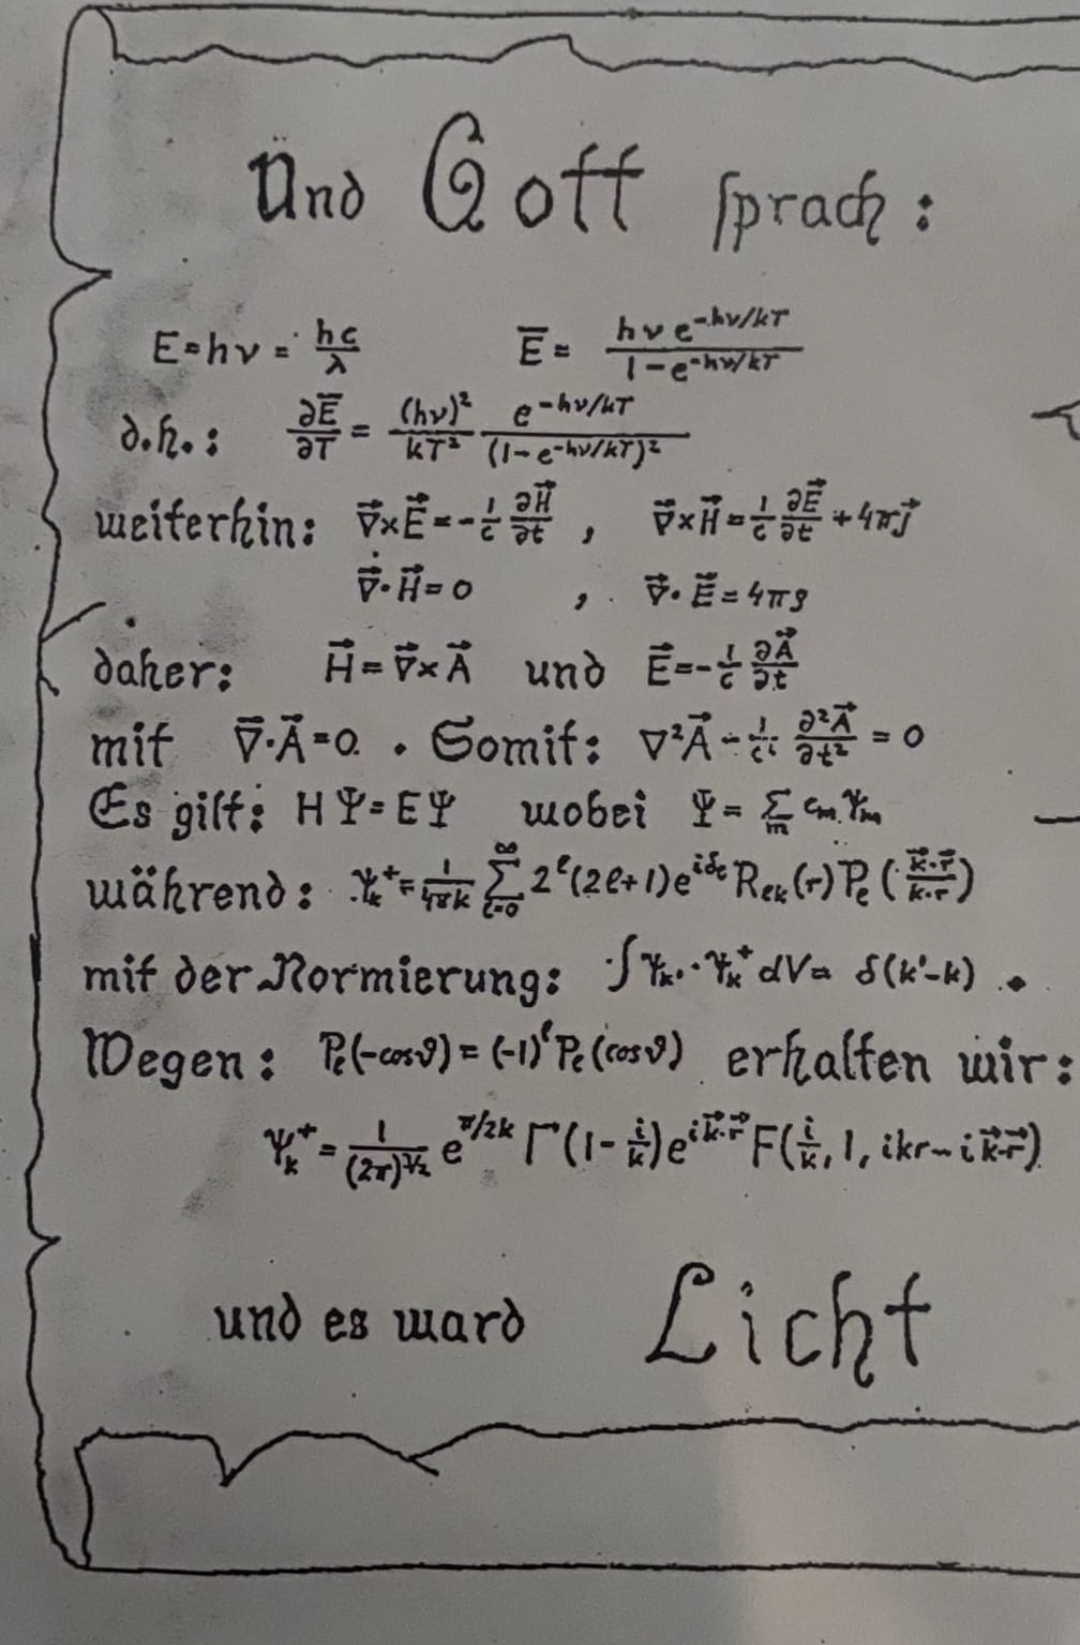 Und Gott sprach:
E = hν = hc/λ    E̅ = hν e^(-hν/kT) / (1 - e^(-hν/kT))
d.h.: ∂E̅/∂T = (hν)²/kT² e^(-hν/kT) / (1 - e^(-hν/kT))²
weiterhin: ∇⃗×E⃗ = -1/c ∂H⃗/∂t , ∇⃗×H⃗ = 1/c ∂E⃗/∂t + 4πj⃗
∇⃗·H⃗ = 0 , ∇⃗·E⃗ = 4πρ
daher: H⃗ = ∇⃗×A⃗ und E⃗ = -1/c ∂A⃗/∂t
mit ∇⃗·A⃗ = 0. Somit: ∇²A⃗ - 1/c² ∂²A⃗/∂t² = 0
Es gilt: HΨ = EΨ wobei Ψ = Σ_m c_m ψ_m
während: ψ_k^+ = 1/(4πk) Σ_(l=0)^∞ 2^ℓ(2ℓ+1)e^(iδ_ℓ) R_ℓk(r) P_ℓ(k⃗·r⃗/k·r)
mit der Normierung: ∫ψ_k'·ψ_k^+ dV = δ(k'-k).
Wegen: P_ℓ(-cosϑ) = (-1)^ℓ P_ℓ(cosϑ) erhalten wir:
ψ_k^+ = 1/(2π)^(3/2) e^(π/2k) Γ(1 - i/k) e^(ik⃗·r⃗) F(i/k, 1, ikr - ik⃗·r⃗)
und es ward Licht